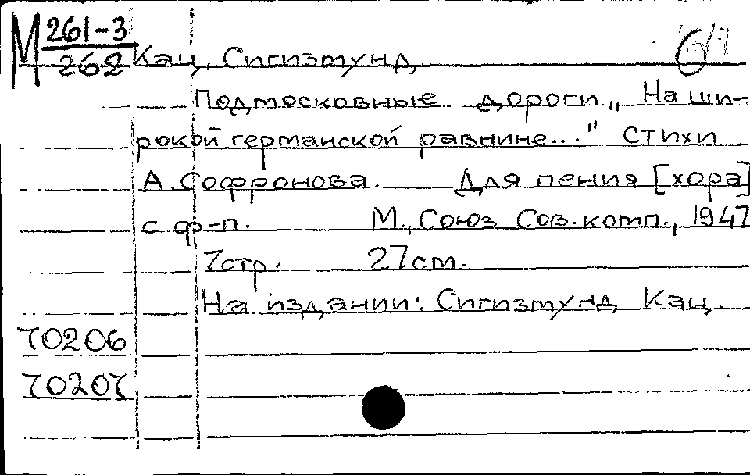 М 261-3
262
Кац, Сигизмунд
Подмосковные дороги „На ши-
рокой германской равнине..." Стихи
А. Софронова. Для пения [хора]
с ф-п. М., Союз Сов. комп., 1947
7 стр. 27 см.
На издании: Сигизмунд Кац.
70206
70207